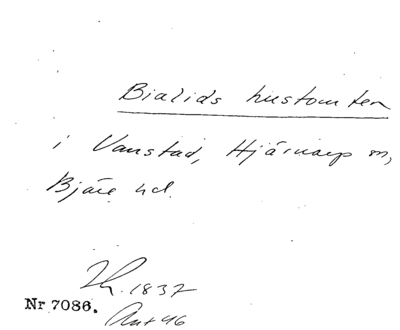 Bialids hustomten
i Vanstad, Hjärnarp sn,
Bjäre hd.
Th. 1837
Nr 7086.
Ant 46